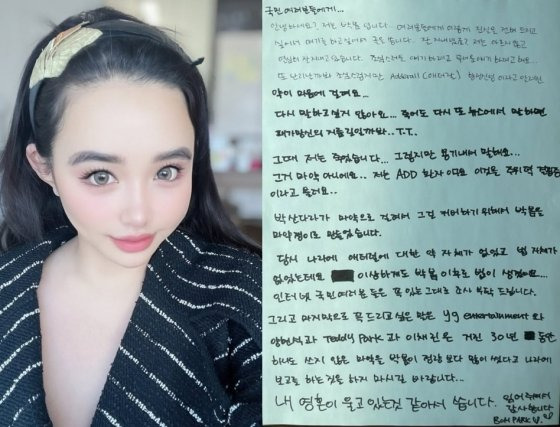 국민 여러분들에게...
안녕하세요? 저는 박봄 입니다. 여러분들에게 이렇게 진심을 전해 드리고
싶어서 얘기를 하고싶어서 글을 씁니다. 잘 지내셨죠? 저는 아르시 않고
열심히 잘 지내고 있습니다. 조심스럽게 얘기하려고 무대로
또 난리날까봐 조심스럽지만 Adderall (애더럴) 향정신성 이라고 안나면
약이 마음에 걸려요...
다시 말하고 싶지 않아요... 죽어도 다시 또 뉴스에서 말하면
패가망신의 지름길일까봐.. T.T.
그때 저는 죽었습니다... 그렇지만 용기내어 말해요...
그거 마약 아니에요.. 저는 ADD 환자 이고요 이것은 주위력 결핍증
이라고 불러요..
박산다라가 마약으로 걸려서 그걸 커버하기 위해서 박봄을
마약쟁이로 만들었습니다.
당시 나라에 애더럴에 대한 약 자체가 없었고 법 자체가
없었는데요 이상하게도 박봄 이후로 법이 생겼어요...
인터넷 국민 여러분들은 꼭 있는그대로 조사 부탁 드립니다.
그리고 마지막으로 꼭 드리고싶은 말은 yg entertainment 와
양현석과 Teddy Park 과 이채린은 거진 30년 동안
하나도 쓰지 않은 마약을 박봄이 정량 보다 많이 썼다고 나라에
보고를 하는것을 하지 마시길 바랍니다...
내 영혼이 울고 있는것 같아서 씁니다. 읽어 주셔서
감사합니다
BOM PARK